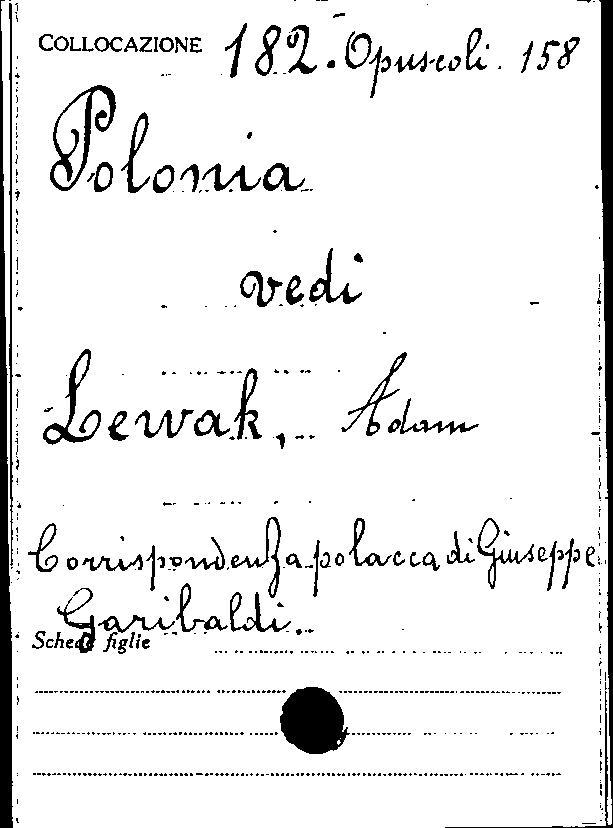 COLLOCAZIONE 182. Opuscoli. 158
Polonia
vedi
Lewak, Adam
Corrispondenza polacca di Giuseppe
Garibaldi.
Schede figlie